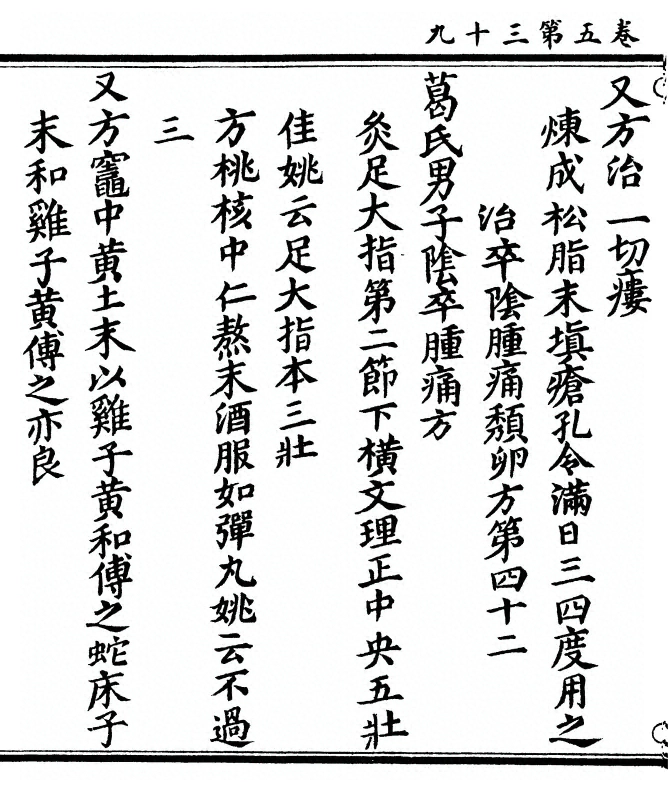 卷五第三十九
又方治一切瘻
煉成松脂末填瘡孔令滿日三四度用之
治卒陰腫痛頽卵方第四十二
葛氏男子陰卒腫痛方
灸足大指第二節下橫文理正中央五壯
佳姚云足大指本三壯
方桃核中仁熬末酒服如彈丸姚云不過
三
又方竈中黃土末以雞子黃和傅之蛇床子
末和雞子黃傅之亦良